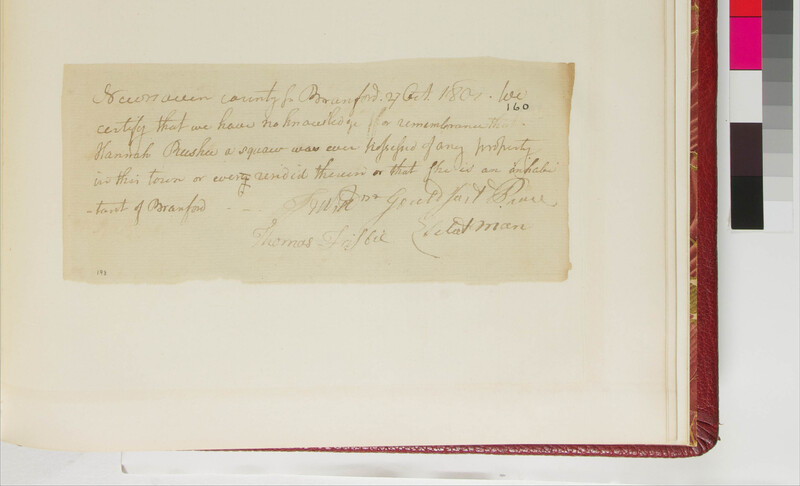 Newhaven county ss Branford. 27 Oct. 1801. We
160
certify that we have no knowledge or remembrance that
Hannah a squaw was ever possessed of any property
in this town or ever resided therein or that she is an inhabi
-tant of Branford - - Wm Gould Just Peace
Thomas Frisbie Select man
193